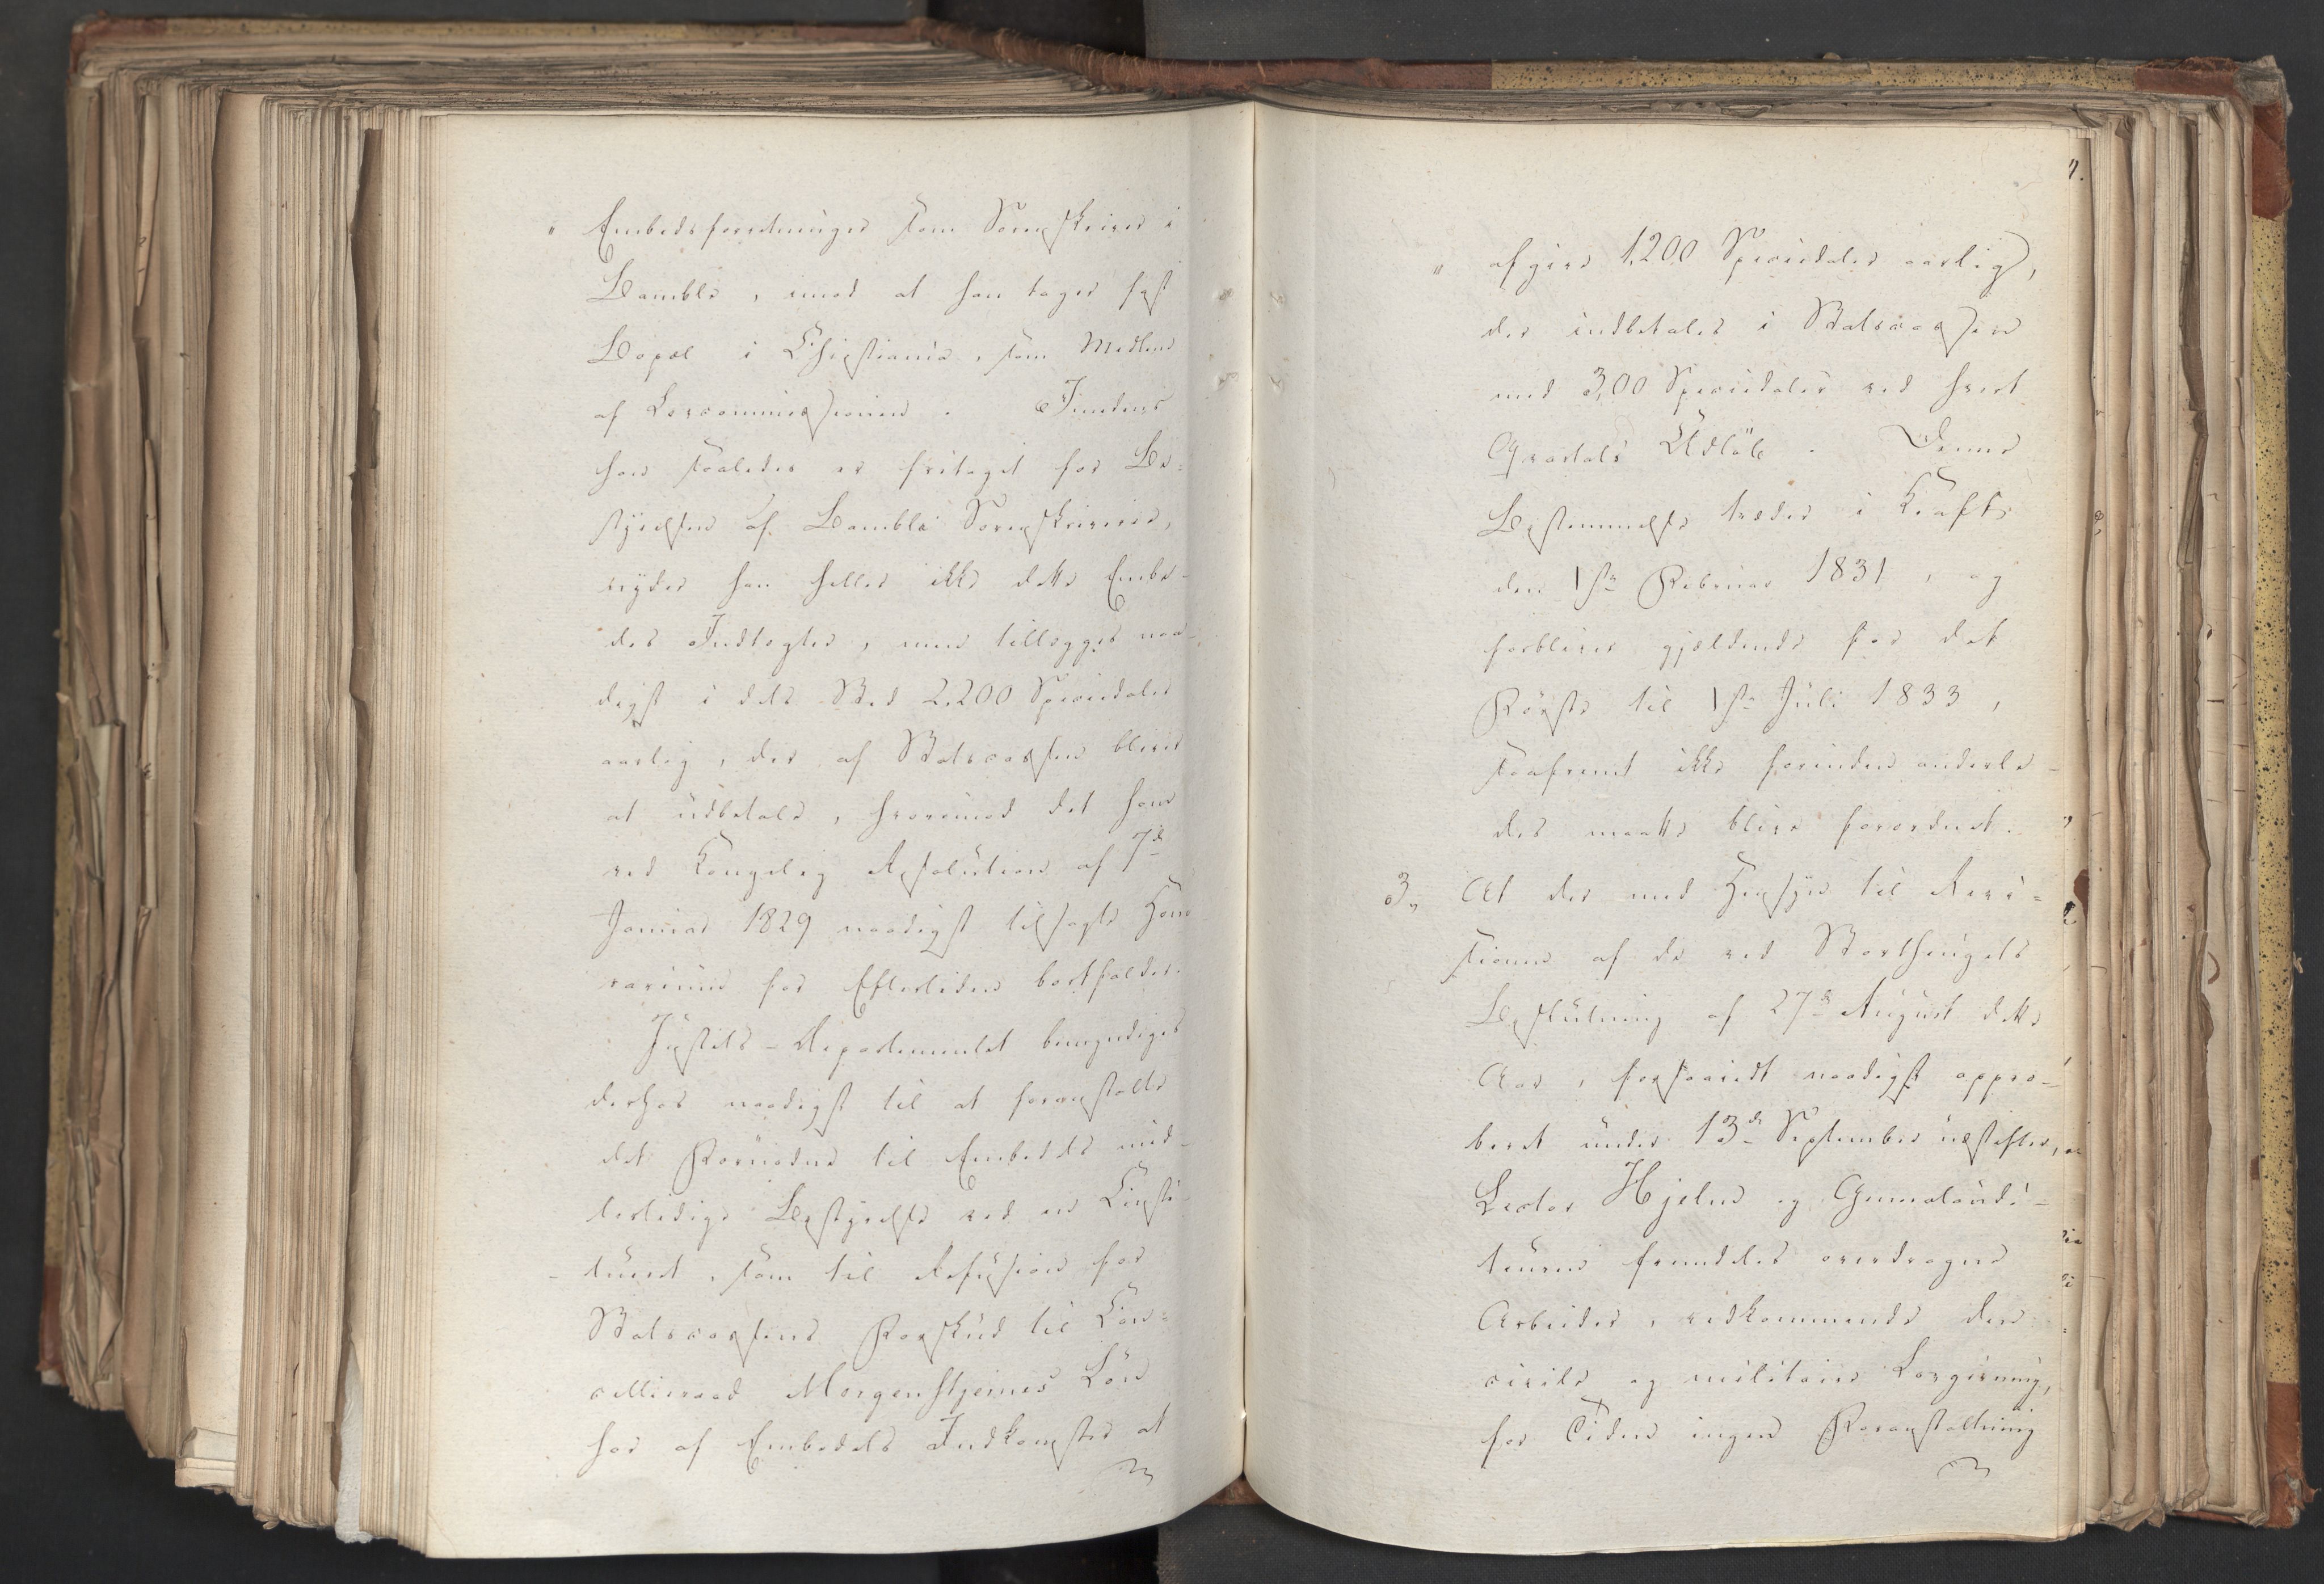 " Embedsforretninger som Sorenskriver i
Bamble, imod at han tager fast
Bopæl i Christiania, som Medlem
af Lovcommissionen. Imedens
han saaledes er fritaget for Be-
styrelsen af Bamble Sorenskriverie,
nyder han heller ikke dette Embe-
des Indtægter, men tillægges naa-
digst i dets Sted 2,200 Speciedaler
aarlig, der af Statscassen bliver
at udbetale, hvorimod det ham
ved Kongelig Resolution af 7de
Januar 1829 naadigst tilsagte Hono
rarium for Eftertiden bortfalder.
Justits-Departementet bemyndiges
derhos naadigst til at foranstalte
det Fornødne til Embedets mid-
lertidige Bestyrelse ved en Consti-
tueret, som til Refusion for
Statscassens Forskud til Can-
cellieraad Morgenstjernes Løn
har af Embedets Indkomster at
" afgive 1,200 Speciedaler aarlig,
der indbetales i Statscassen
med 3,00 Speciedaler ved hvert
Qvartals Udløb. Denne
Bestemmelse træder i Kraft
den 1ste Februar 1831, og
forbliver gjældende for det
Første til 1ste Juli 1833,
saafremt ikke forinden anderle-
des maatte blive forordnet.
3, At der med Hensyn til Revi-
sionen af de ved Storthingets
Beslutning af 27de August dette
Aar, forsaavidt naadigst appro-
beret under 13de September næstefter,
Lector Hjelm og Generalaudi-
teuren fremdeles overdragne
Arbeider, vedkommende den
civile og militaire Lovgivning,
for Tiden ingen Foranstaltning